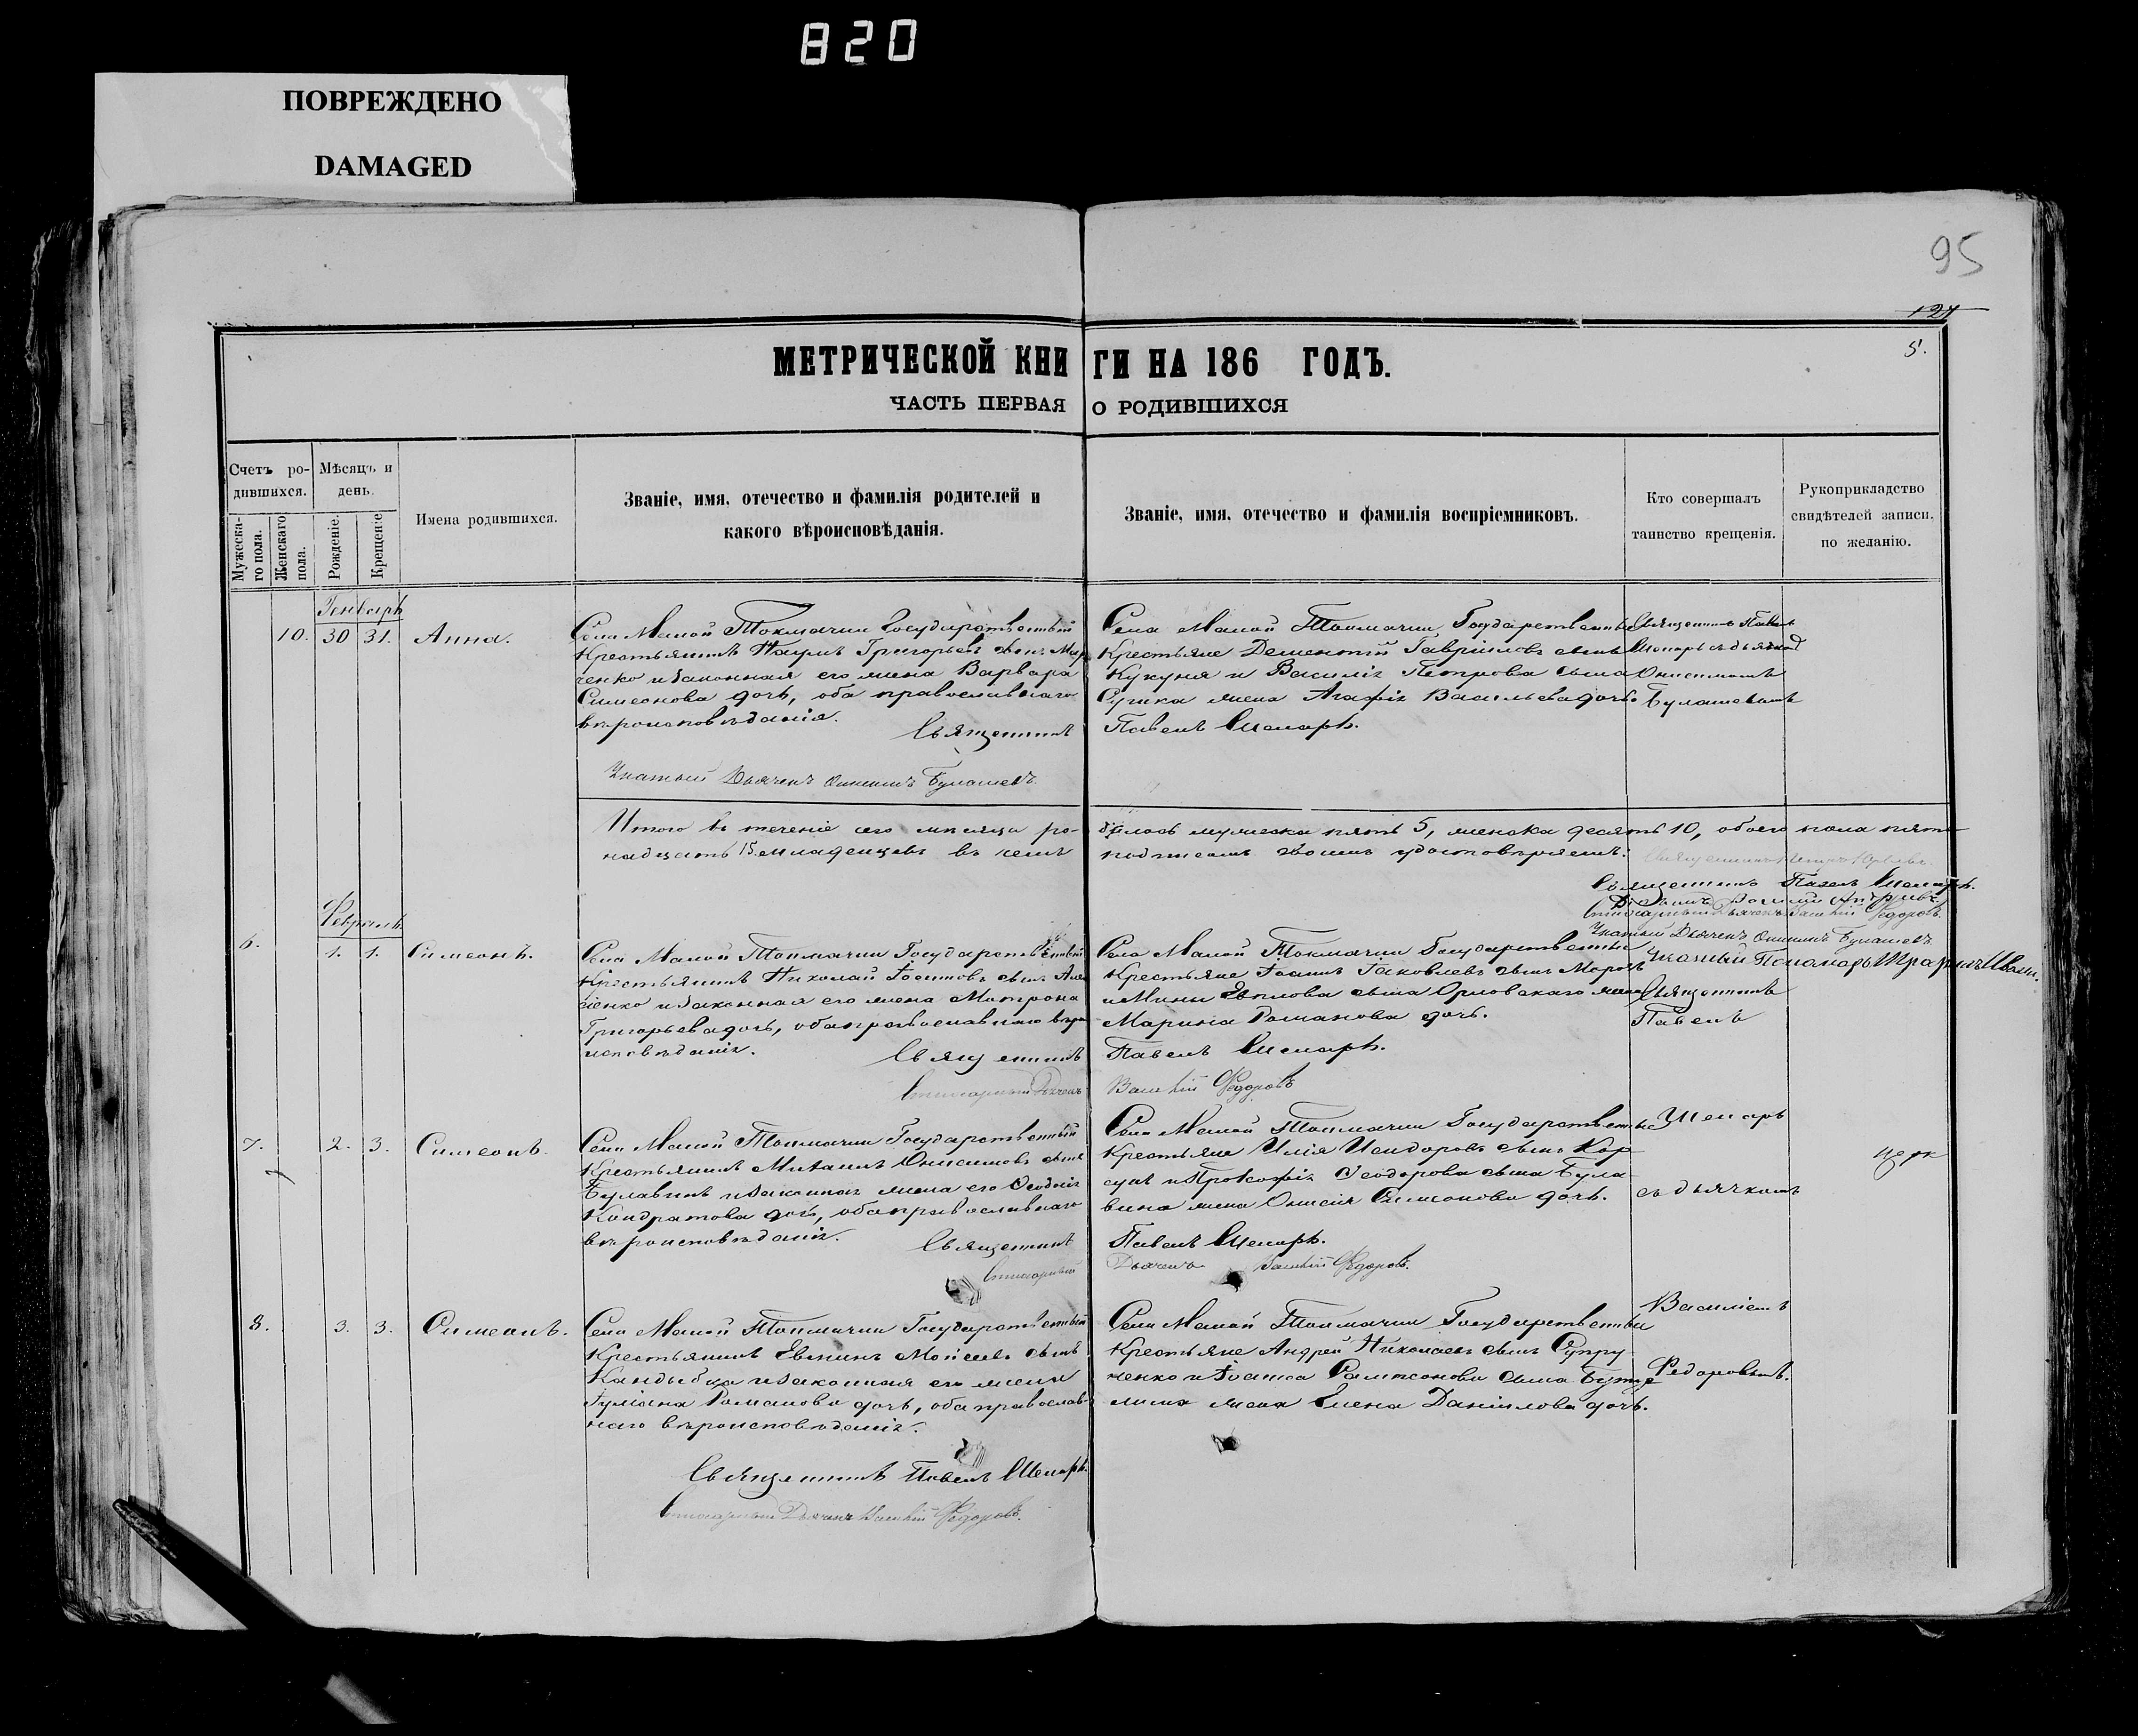 820
ПОВРЕЖДЕНО
DAMAGED
95
124
5.
МЕТРИЧЕСКОЙ КНИГИ НА 186 ГОДЪ.
ЧАСТЬ ПЕРВАЯ О РОДИВШИХСЯ
Счетъ ро-
дившихся.
Мужеска-
го пола.
Женскаго
пола.
Мѣсяцъ и
день.
Рожденіе.
Крещеніе
Имена родившихся.
Званіе, имя, отечество и фамилія родителей и
какого вѣроисповѣданія.
Званіе, имя, отечество и фамилія воспріемниковъ.
Кто совершалъ
таинство крещенія.
Рукоприкладство
свидѣтелей записи,
по желанію.
Генварь
10. 30 31. Анна.
Села Малой Токмачки Государственный
Крестьянинъ Наумъ Григорьевъ сынъ Мар
ченко и законная его жена Варвара
Симеонова дочь, оба православнаго
вѣроисповѣданія.
Священникъ
Села Малой Токмачки Государственные
Крестьяне Дементій Гавріиловъ сынъ
Кукуня и Василія Петрова сына
жена Агафія Васильева дочь.
Павелъ
Священникъ Павелъ
съ дьячкомъ
Онисимомъ
Булашевымъ
Дьячекъ Онисимъ Булашевъ
Итого въ теченіе сего мѣсяца ро-
дилось мужеска пять 5, женска десять 10, обоего пола пят-
надцать 15 младенцевъ въ чемъ
подписомъ своимъ удостовѣряемъ:
Священникъ Павелъ
Дьячекъ Василій Федоровъ
Дьячекъ Онисимъ Булашевъ
Пономарь
Февраль
6. 1. 1. Симеонъ.
Села Малой Токмачки Государственный
Крестьянинъ Николай сынъ
и законная его жена Матрона
Григорьева дочь, оба православнаго вѣро
исповѣданія.
Священникъ
Дьячекъ
Села Малой Токмачки Государственные
Крестьяне Іоаннъ Іаковлевъ сынъ Морозъ
и Мины сына Орловскаго жена
Марина Романова дочь.
Павелъ
Василій Федоровъ
Священникъ
Павелъ
7. 2. 3. Симеонъ.
Села Малой Токмачки Государственный
Крестьянинъ Михаилъ Онисимовъ сынъ
Булавинъ и законная жена его Феодосія
Кондратова дочь, оба православнаго
вѣроисповѣданія.
Священникъ
Села Малой Токмачки Государственные
Крестьяне Илія Исидоровъ сынъ Кор
сунь и Прокофія Феодорова сына Була
вина жена Симеонова дочь.
Павелъ
Дьячекъ Василій Федоровъ.
съ дьячкомъ
8. 3. 3. Симеонъ.
Села Малой Токмачки Государственный
Крестьянинъ Моисеевъ сынъ
Кандыбка и законная его жена
Іуліана Романова дочь, оба православ-
наго вѣроисповѣданія.
Священникъ Павелъ
Дьячекъ Василій Федоровъ.
Села Малой Токмачки Государственные
Крестьяне Андрей Николаевъ сынъ Супру
ненко и Іоанна сына
жена Елена Даніилова дочь.
Василіемъ
Федоровымъ.